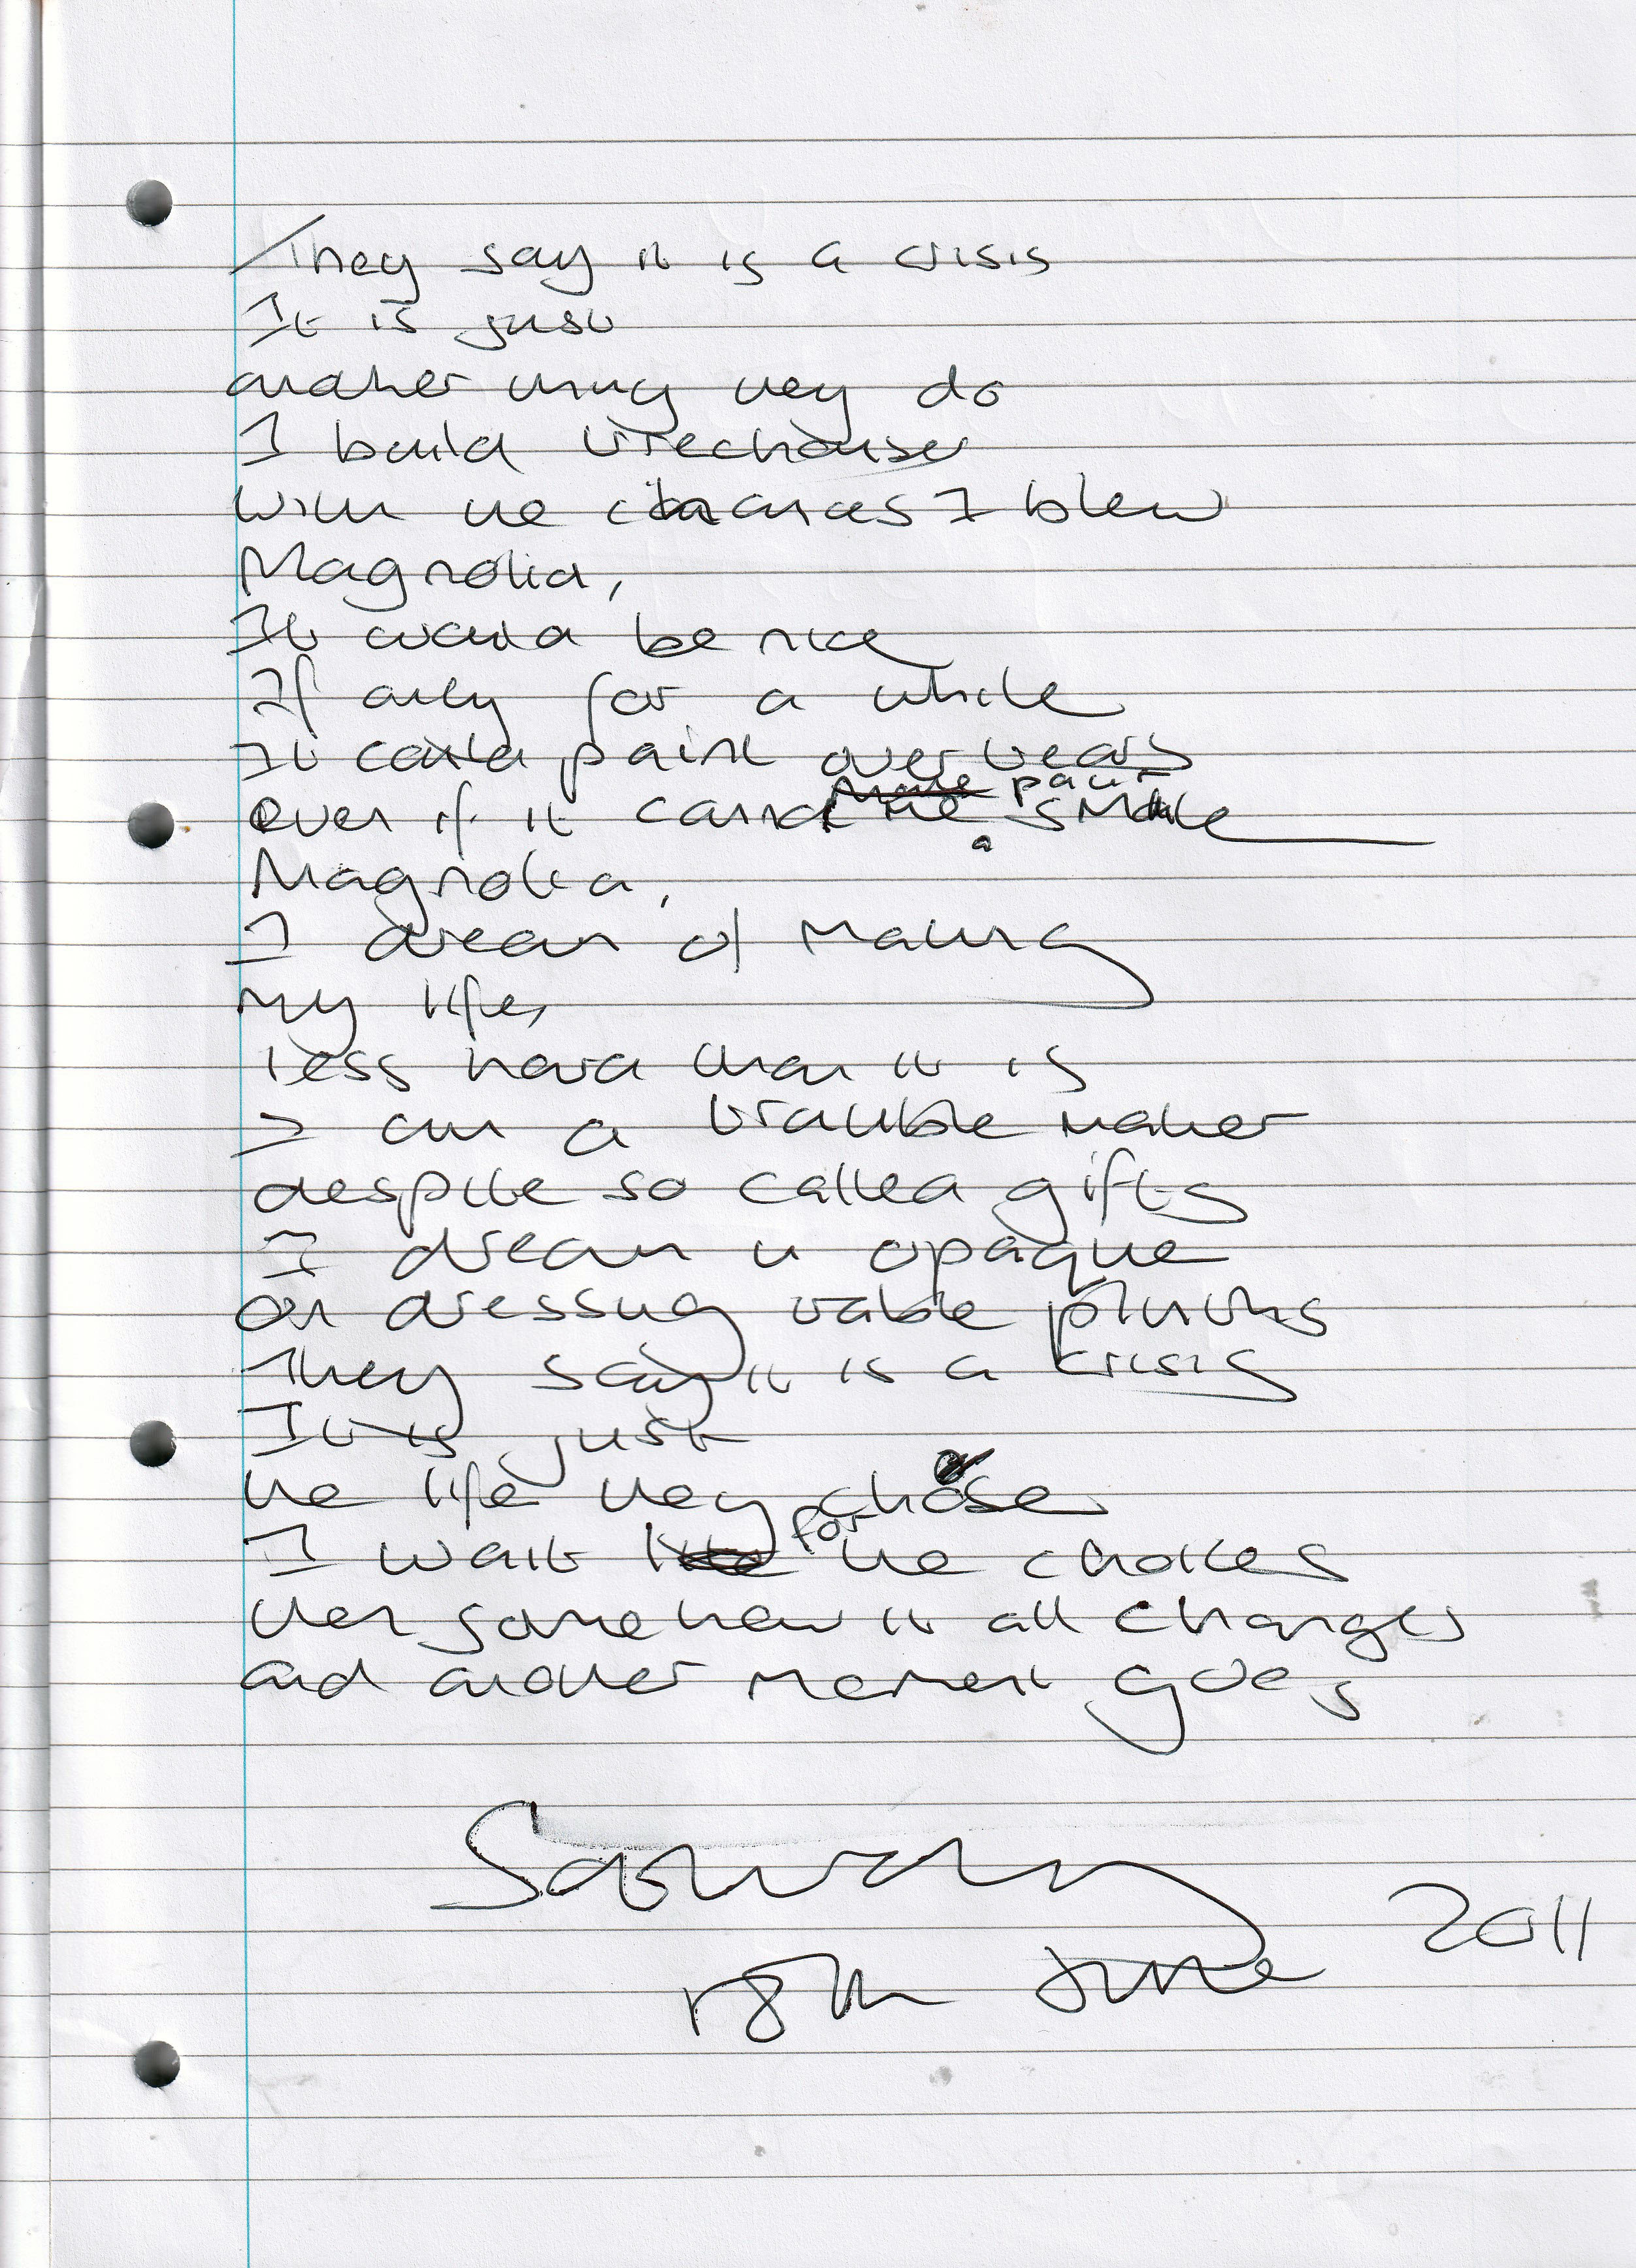 They say it is a crisis
It is just
another thing they do
I build treehouses
with the chances I blew
Magnolia,
It would be nice
If only for a while
It could paint over tears
even if it cannot paint a smile
Magnolia,
I dream of making
my life,
less hard than it is
I am a trouble maker
despite so called gifts
I dream it opaque
on dressing table plinths
They say it is a crisis
It is just
the life they chose
I wait for the choices
then somehow it all changes
and another moment goes
18th June 2011